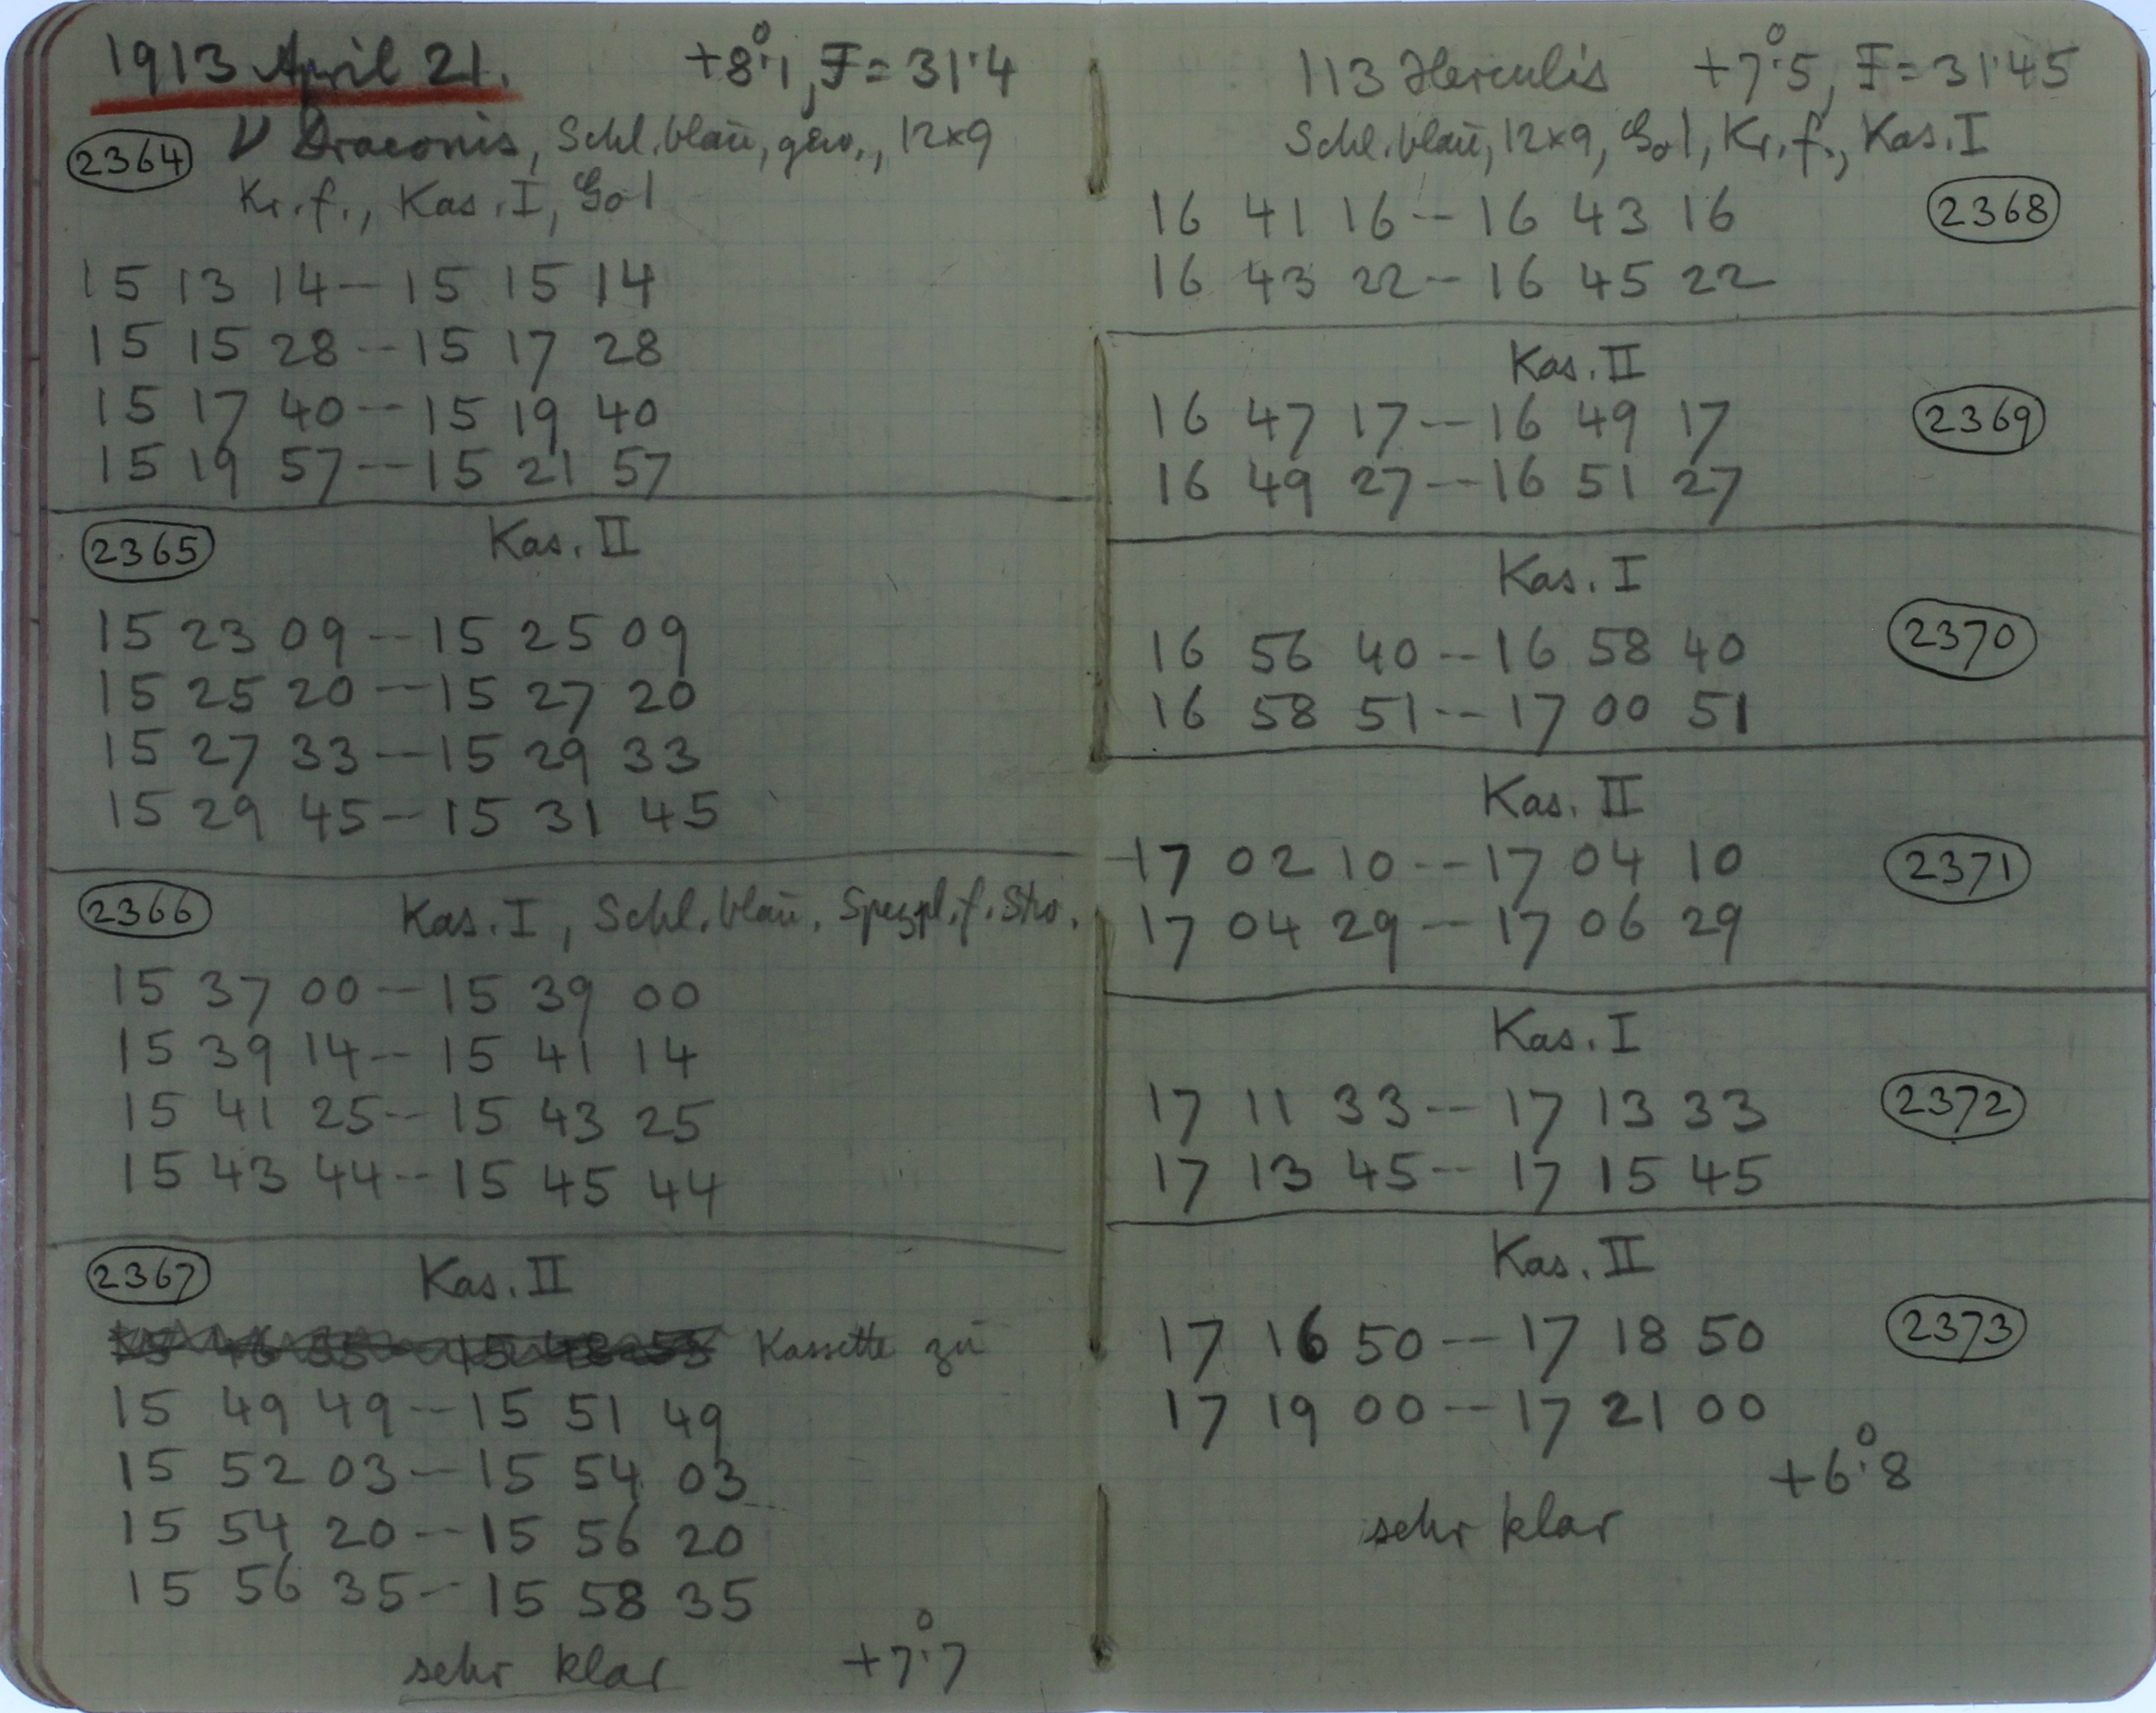 1913 April 21. +8°.1, F = 31.4
2364 ν Draconis, Schl. blau, gew., 12×9
Kr. f., Kas. I, Gol
15 13 14 — 15 15 14
15 15 28 -- 15 17 28
15 17 40 -- 15 19 40
15 19 57 -- 15 21 57
2365 Kas. II
15 23 09 -- 15 25 09
15 25 20 -- 15 27 20
15 27 33 -- 15 29 33
15 29 45 -- 15 31 45
2366 Kas. I, Schl. blau. Spezpl. f. Stro.
15 37 00 -- 15 39 00
15 39 14 -- 15 41 14
15 41 25 -- 15 43 25
15 43 44 -- 15 45 44
2367 Kas. II
Kassette zu
15 49 49 -- 15 51 49
15 52 03 -- 15 54 03
15 54 20 -- 15 56 20
15 56 35 -- 15 58 35
sehr klar +7°.7
113 Herculis +7°.5, F = 31.45
Schl. blau, 12×9, Gol, Kr. f., Kas. I
16 41 16 -- 16 43 16 2368
16 43 22 -- 16 45 22
Kas. II
16 47 17 -- 16 49 17 2369
16 49 27 -- 16 51 27
Kas. I
16 56 40 -- 16 58 40 2370
16 58 51 -- 17 00 51
Kas. II
17 02 10 -- 17 04 10 2371
17 04 29 -- 17 06 29
Kas. I
17 11 33 -- 17 13 33 2372
17 13 45 -- 17 15 45
Kas. II
17 16 50 -- 17 18 50 2373
17 19 00 -- 17 21 00
+6°.8
sehr klar